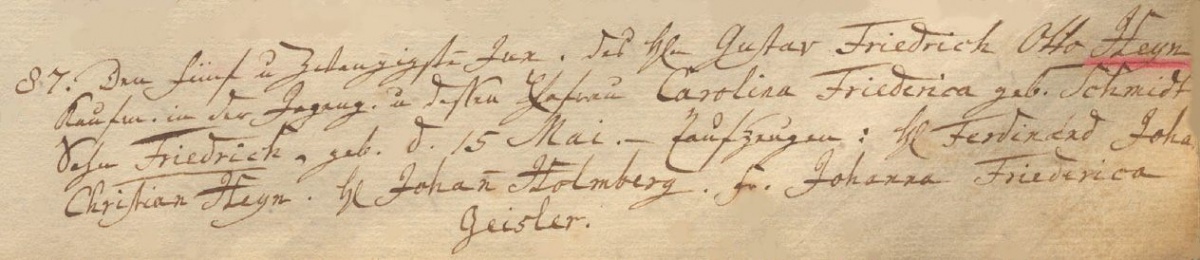 87. Den fünf u Zwanzigste Jun. des H̄n Gustav Friedrich Otto Heyn
Kaufm. in der Jegeng. u dessen Ehefrau Carolina Friederica geb. Schmidt
Sohn Friedrich, geb. d. 15 Mai. – Taufzeugen: H̄ Ferdinand Joha
Christian Heyn. H̄ Johan̄ Holmberg. Fr. Johanna Friederica
Geisler.